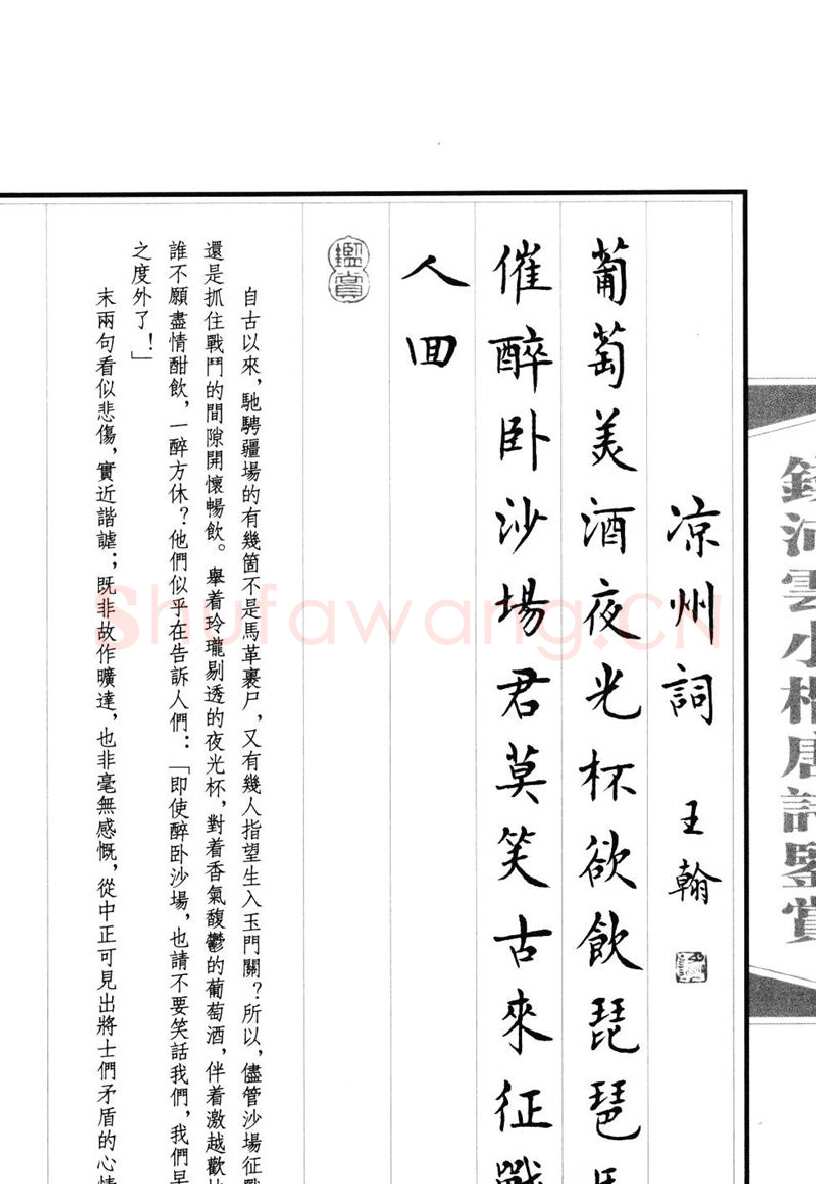 河雲小楷唐詩鑒賞
凉州詞 王翰
葡萄美酒夜光杯欲飲琵琶
催醉卧沙場君莫笑古來征戰
人回
鑑賞
自古以來，馳騁疆場的有幾箇不是馬革裹尸，又有幾人指望生入玉門關？所以，儘管沙場征戰
還是抓住戰鬥的間隙開懷暢飲。舉着玲瓏剔透的夜光杯，對着香氣馥鬱的葡萄酒，伴着激越歡
誰不願盡情酣飲，一醉方休？他們似乎在告訴人們：「即使醉卧沙場，也請不要笑話我們，我們早
之度外了！」
末兩句看似悲傷，實近諧謔；既非故作曠達，也非毫無感慨，從中正可見出將士們矛盾的心情
Shufawang.CN